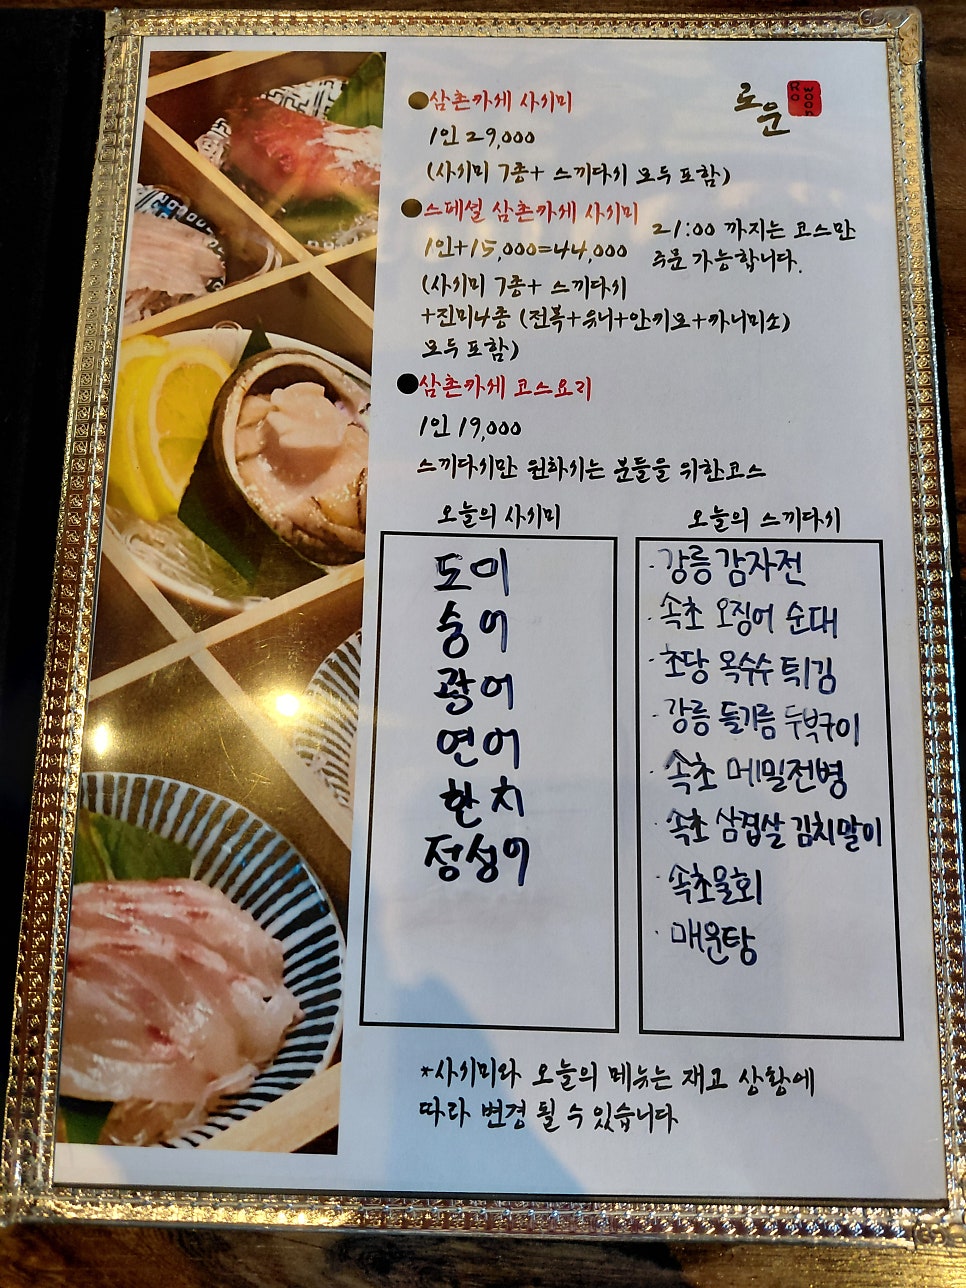 로운
Ro
woon
●삼촌가게 사시미
1인 29,000
(사시미 7종+ 스끼다시 모두 포함)
●스페셜 삼촌가게 사시미
1인+15,000=44,000
21:00 까지는 코스만
주문 가능합니다.
(사시미 7종+ 스끼다시
+진미4종 (전복+우니+안키모+카니미소)
모두 포함)
●삼촌가게 코스요리
1인 19,000
스끼다시만 원하시는 분들을 위한코스
오늘의 사시미
도미
숭어
광어
연어
한치
점성어
오늘의 스끼다시
· 강릉 감자전
· 속초 오징어 순대
· 초당 옥수수 튀김
· 강릉 들기름 두부구이
· 속초 메밀전병
· 속초 삼겹살 김치말이
· 속초물회
· 매운탕
*사시미와 오늘의 메뉴는 재고 상황에
따라 변경 될 수 있습니다